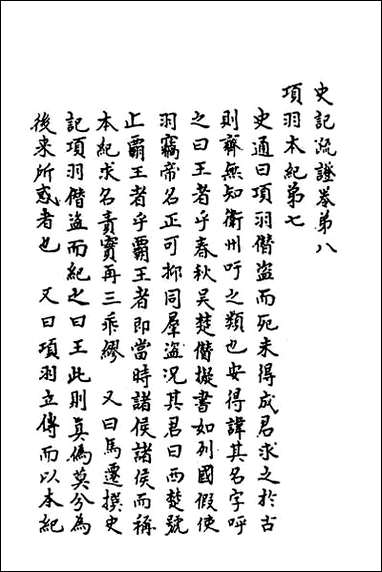 史記疏證卷第八
項羽本紀第七
史通曰項羽僣盜而死未得成君求之於古
則齊無知衛州吁之類也安得諱其名字呼
之曰王者乎春秋吳楚僣擬書如列國假使
羽竊帝名正可抑同羣盜況其君曰西楚號
止霸王者乎霸王者即當時諸侯諸侯而稱
本紀求名責實再三乖繆　又曰馬遷撰史
記項羽僣盜而紀之曰王此則真偽莫分為
後来所惑者也　又曰項羽立傳而以本紀